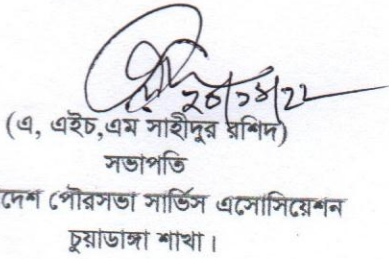 (এ, এইচ,এম সাহীদুর রশিদ)
সভাপতি
দেশ পৌরসভা সার্ভিস এসোসিয়েশন
চুয়াডাঙ্গা শাখা।